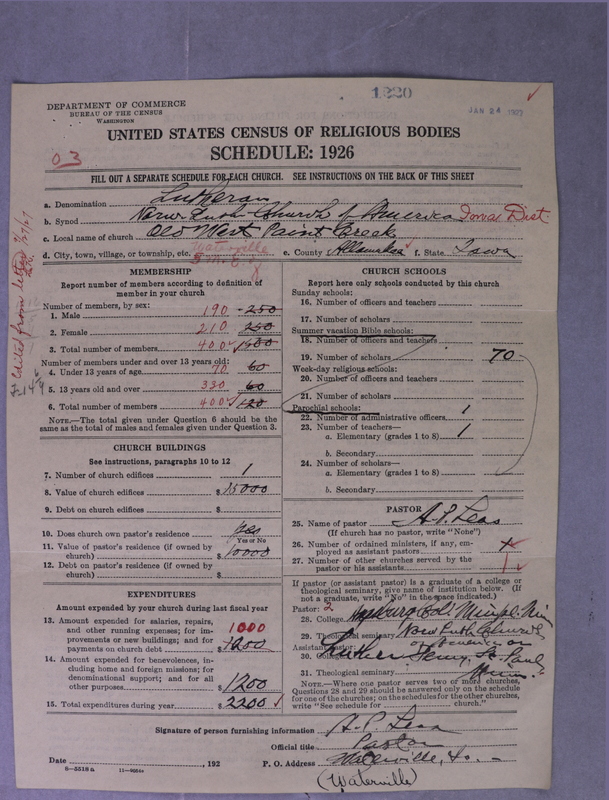 1220
JAN 24 1927
DEPARTMENT OF COMMERCE
BUREAU OF THE CENSUS
WASHINGTON
UNITED STATES CENSUS OF RELIGIOUS BODIES
03
SCHEDULE: 1926
FILL OUT A SEPARATE SCHEDULE FOR EACH CHURCH. SEE INSTRUCTIONS ON THE BACK OF THIS SHEET
a. Denomination Lutheran
b. Synod Norw Luth Church of America Iowa Dist.
c. Local name of church Old West Paint Creek
Waterville
d. City, town, village, or township, etc. e. County Allamakee f. State Iowa
Edited from letter
MEMBERSHIP
Report number of members according to definition of member in your church
Number of members, by sex:
1. Male 190 250
2. Female 210 250
3. Total number of members 400 1500
Number of members under and over 13 years old:
4. Under 13 years of age 70 60
5. 13 years old and over 330 60
6. Total number of members 400 120
NOTE.—The total given under Question 6 should be the same as the total of males and females given under Question 3.
CHURCH BUILDINGS
See instructions, paragraphs 10 to 12
7. Number of church edifices 1
8. Value of church edifices $ 15000
9. Debt on church edifices $
10. Does church own pastor's residence yes
Yes or No
11. Value of pastor's residence (if owned by church) $ 10000
12. Debt on pastor's residence (if owned by church) $
EXPENDITURES
Amount expended by your church during last fiscal year
13. Amount expended for salaries, repairs, and other running expenses; for improvements or new buildings; and for payments on church debt $ 1000 1200
14. Amount expended for benevolences, including home and foreign missions; for denominational support; and for all other purposes $ 1200
15. Total expenditures during year $ 2200
CHURCH SCHOOLS
Report here only schools conducted by this church
Sunday schools:
16. Number of officers and teachers
17. Number of scholars
Summer vacation Bible schools:
18. Number of officers and teachers
19. Number of scholars 70
Week-day religious schools:
20. Number of officers and teachers
21. Number of scholars
Parochial schools: 1
22. Number of administrative officers
23. Number of teachers—
a. Elementary (grades 1 to 8) 1
b. Secondary
24. Number of scholars—
a. Elementary (grades 1 to 8)
b. Secondary
PASTOR
25. Name of pastor A. P. Leas
(If church has no pastor, write "None")
26. Number of ordained ministers, if any, employed as assistant pastors
27. Number of other churches served by the pastor or his assistants 1
If pastor (or assistant pastor) is a graduate of a college or theological seminary, give name of institution below. (If not a graduate, write "No" in the space indicated.)
Pastor: 2
28. College
29. Theological seminary Norw Luth Church
Assistant pastor:
30. College Luther Semy, St. Paul
31. Theological seminary Minn.
NOTE.—Where one pastor serves two or more churches, Questions 28 and 29 should be answered only on the schedule for one of the churches; on the schedules for the other churches, write "See schedule for church."
Signature of person furnishing information A. P. Leas
Official title Pastor
Date , 192 P. O. Address Waterville, Io.
8—5518a
(Waterville)